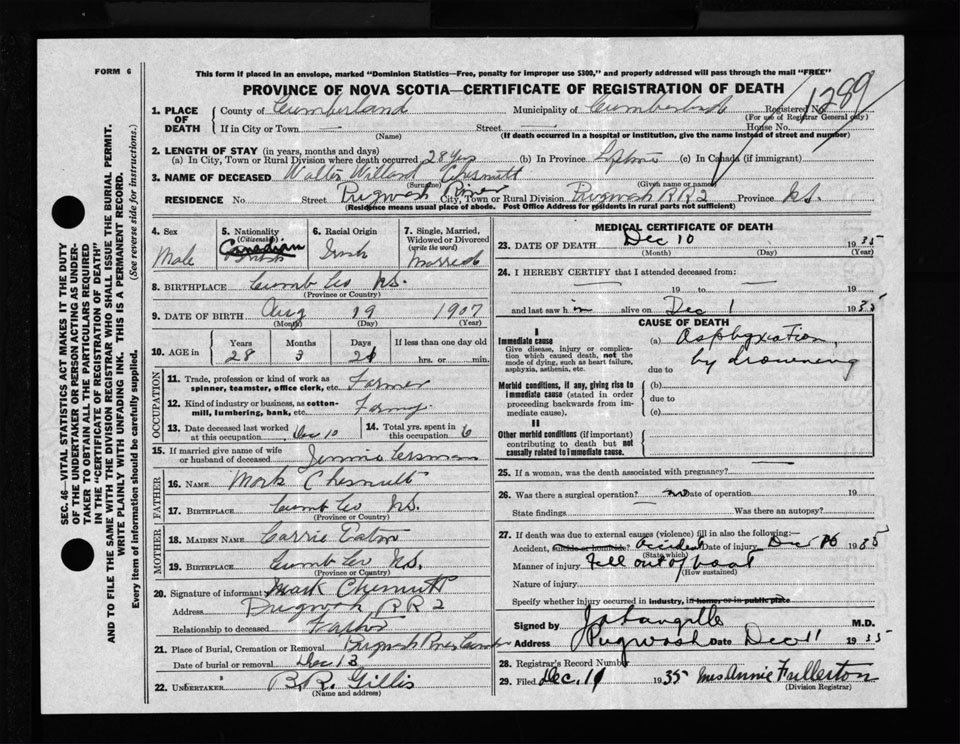 FORM 6
This form if placed in an envelope, marked "Dominion Statistics—Free, penalty for improper use $300," and properly addressed will pass through the mail "FREE"
PROVINCE OF NOVA SCOTIA—CERTIFICATE OF REGISTRATION OF DEATH
1289
1. PLACE OF DEATH County of Cumberland Municipality of Cumberland Registered No.
(For use of Registrar General only)
If in City or Town — Street — House No.
(Name) (If death occurred in a hospital or institution, give the name instead of street and number)
2. LENGTH OF STAY (in years, months and days)
(a) In City, Town or Rural Division where death occurred 28 yrs (b) In Province Lifetime (c) In Canada (if immigrant)
3. NAME OF DECEASED Walter Willard Chesnutt
(Surname) (Given name or names)
RESIDENCE No. Street Pugwash River City, Town or Rural Division Pugwash RR2 Province N.S.
(Residence means usual place of abode. Post Office Address for residents in rural parts not sufficient)
4. Sex Male
5. Nationality (Citizenship) Canadian British
6. Racial Origin Irish
7. Single, Married, Widowed or Divorced (write the word) Married
8. BIRTHPLACE Cumb Co N.S.
(Province or Country)
9. DATE OF BIRTH Aug 19 1907
(Month) (Day) (Year)
10. AGE in Years Months Days If less than one day old
28 3 21 hrs. or min.
OCCUPATION
11. Trade, profession or kind of work as spinner, teamster, office clerk, etc. Farmer
12. Kind of industry or business, as cotton-mill, lumbering, bank, etc. Farmg.
13. Date deceased last worked at this occupation Dec 10 14. Total yrs. spent in this occupation 6
15. If married give name of wife or husband of deceased Jennie
FATHER
16. NAME Mark Chesnutt
17. BIRTHPLACE Cumb Co N.S.
(Province or Country)
MOTHER
18. MAIDEN NAME Carrie Eaton
19. BIRTHPLACE Cumb Co N.S.
(Province or Country)
20. Signature of informant Mark Chesnutt
Address Pugwash RR2
Relationship to deceased Father
21. Place of Burial, Cremation or Removal Pugwash River
Date of burial or removal Dec 13
22. UNDERTAKER B.R. Gillis
(Name and address)
MEDICAL CERTIFICATE OF DEATH
23. DATE OF DEATH Dec 10 1935
(Month) (Day) (Year)
24. I HEREBY CERTIFY that I attended deceased from:
— 19 to — 19
and last saw him alive on Dec 1 1935
CAUSE OF DEATH
I
Immediate cause
Give disease, injury, or complication which caused death, not the mode of dying, such as heart failure, asphyxia, asthenia, etc.
(a) Asphyxiation,
due to by drowning
Morbid conditions, if any, giving rise to immediate cause (stated in order proceeding backwards from immediate cause).
(b)
due to
(c)
II
Other morbid conditions (if important) contributing to death but not causally related to immediate cause.
25. If a woman, was the death associated with pregnancy? —
26. Was there a surgical operation? no Date of operation 19
State findings Was there an autopsy?
27. If death was due to external causes (violence) fill in also the following:—
Accident, suicide or homicide? Accident Date of injury Dec 10 1935
(State which)
Manner of injury Fell out of boat
(How sustained)
Nature of injury
Specify whether injury occurred in industry, in home, or in public place
Signed by M.D.
Address Pugwash Date Dec 11 1935
28. Registrar's Record Number
29. Filed Dec. 19 35 Mrs Annie Fullerton
(Division Registrar)
SEC. 46—VITAL STATISTICS ACT MAKES IT THE DUTY
OF THE UNDERTAKER OR PERSON ACTING AS UNDER-
TAKER TO OBTAIN ALL THE PARTICULARS REQUIRED
IN THE "CERTIFICATE OF REGISTRATION OF DEATH"
AND TO FILE THE SAME WITH THE DIVISION REGISTRAR WHO SHALL ISSUE THE BURIAL PERMIT.
WRITE PLAINLY WITH UNFADING INK. THIS IS A PERMANENT RECORD.
Every item of information should be carefully supplied. (See reverse side for instructions.)